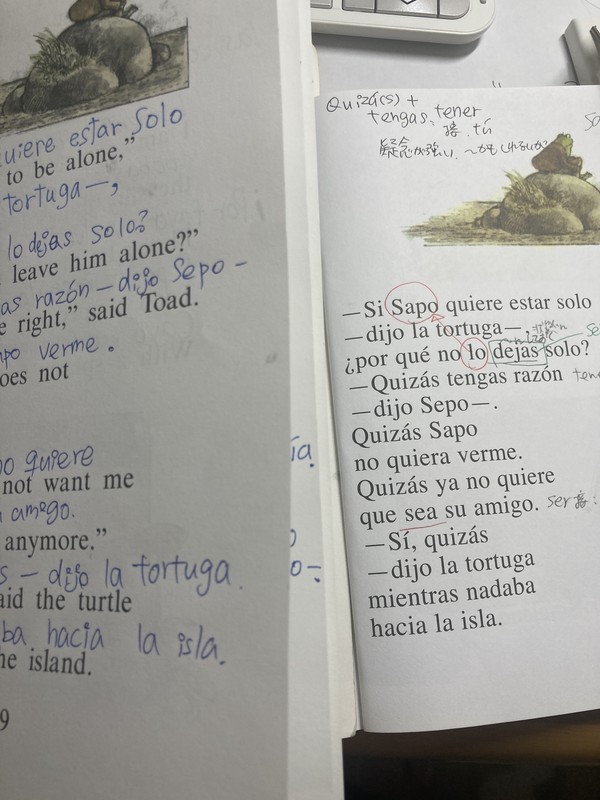 quiere estar solo
to be alone,”
tortuga—,
lo dejas solo?
leave him alone?”
as razón — dijo Sepo —
e right,” said Toad.
po verme.
oes not
o quiere
not want me
amogo.
anymore.”
s — dijo la tortuga.
aid the turtle
ba hacia la isla.
he island.
9
ía.
o—
Quizá(s) +
tengas, tener
接. tú
疑念が強い、～かもしれない
—Si Sapo quiere estar solo
—dijo la tortuga—,
¿por qué no lo dejas solo?
—Quizás tengas razón
—dijo Sepo—.
Quizás Sapo
no quiera verme.
Quizás ya no quiere
que sea su amigo. ser 接:
—Sí, quizás
—dijo la tortuga
mientras nadaba
hacia la isla.